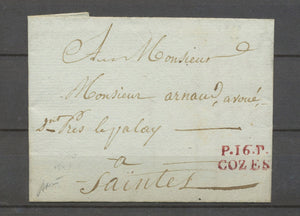 A Monsieur
Monsieur arnaud, avoué,
Près le palay
P.16.P.
COZES
a
Saintes